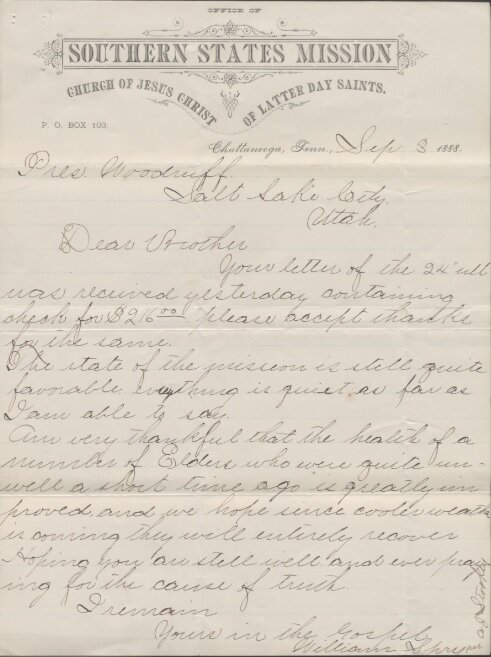 OFFICE OF
SOUTHERN STATES MISSION
CHURCH OF JESUS CHRIST OF LATTER DAY SAINTS.
P. O. BOX 103.
Chattanooga, Tenn., Sep 3 1888.
Pres. Woodruff.
Salt Lake City,
Utah.
Dear Brother
Your letter of the 24" ult
was received yesterday containing
check for $216.00 please accept thanks
for the same.
The state of the mission is still quite
favorable, everything is quiet as far as
I am able to say.
Am very thankful that the health of a
number of Elders who were quite un-
well a short time ago is greatly im
proved and we hope since cooler weather
is coming they will entirely recover
Hoping you are still well and ever pray
ing for the cause of truth
I remain
Yours in the Gospel
William